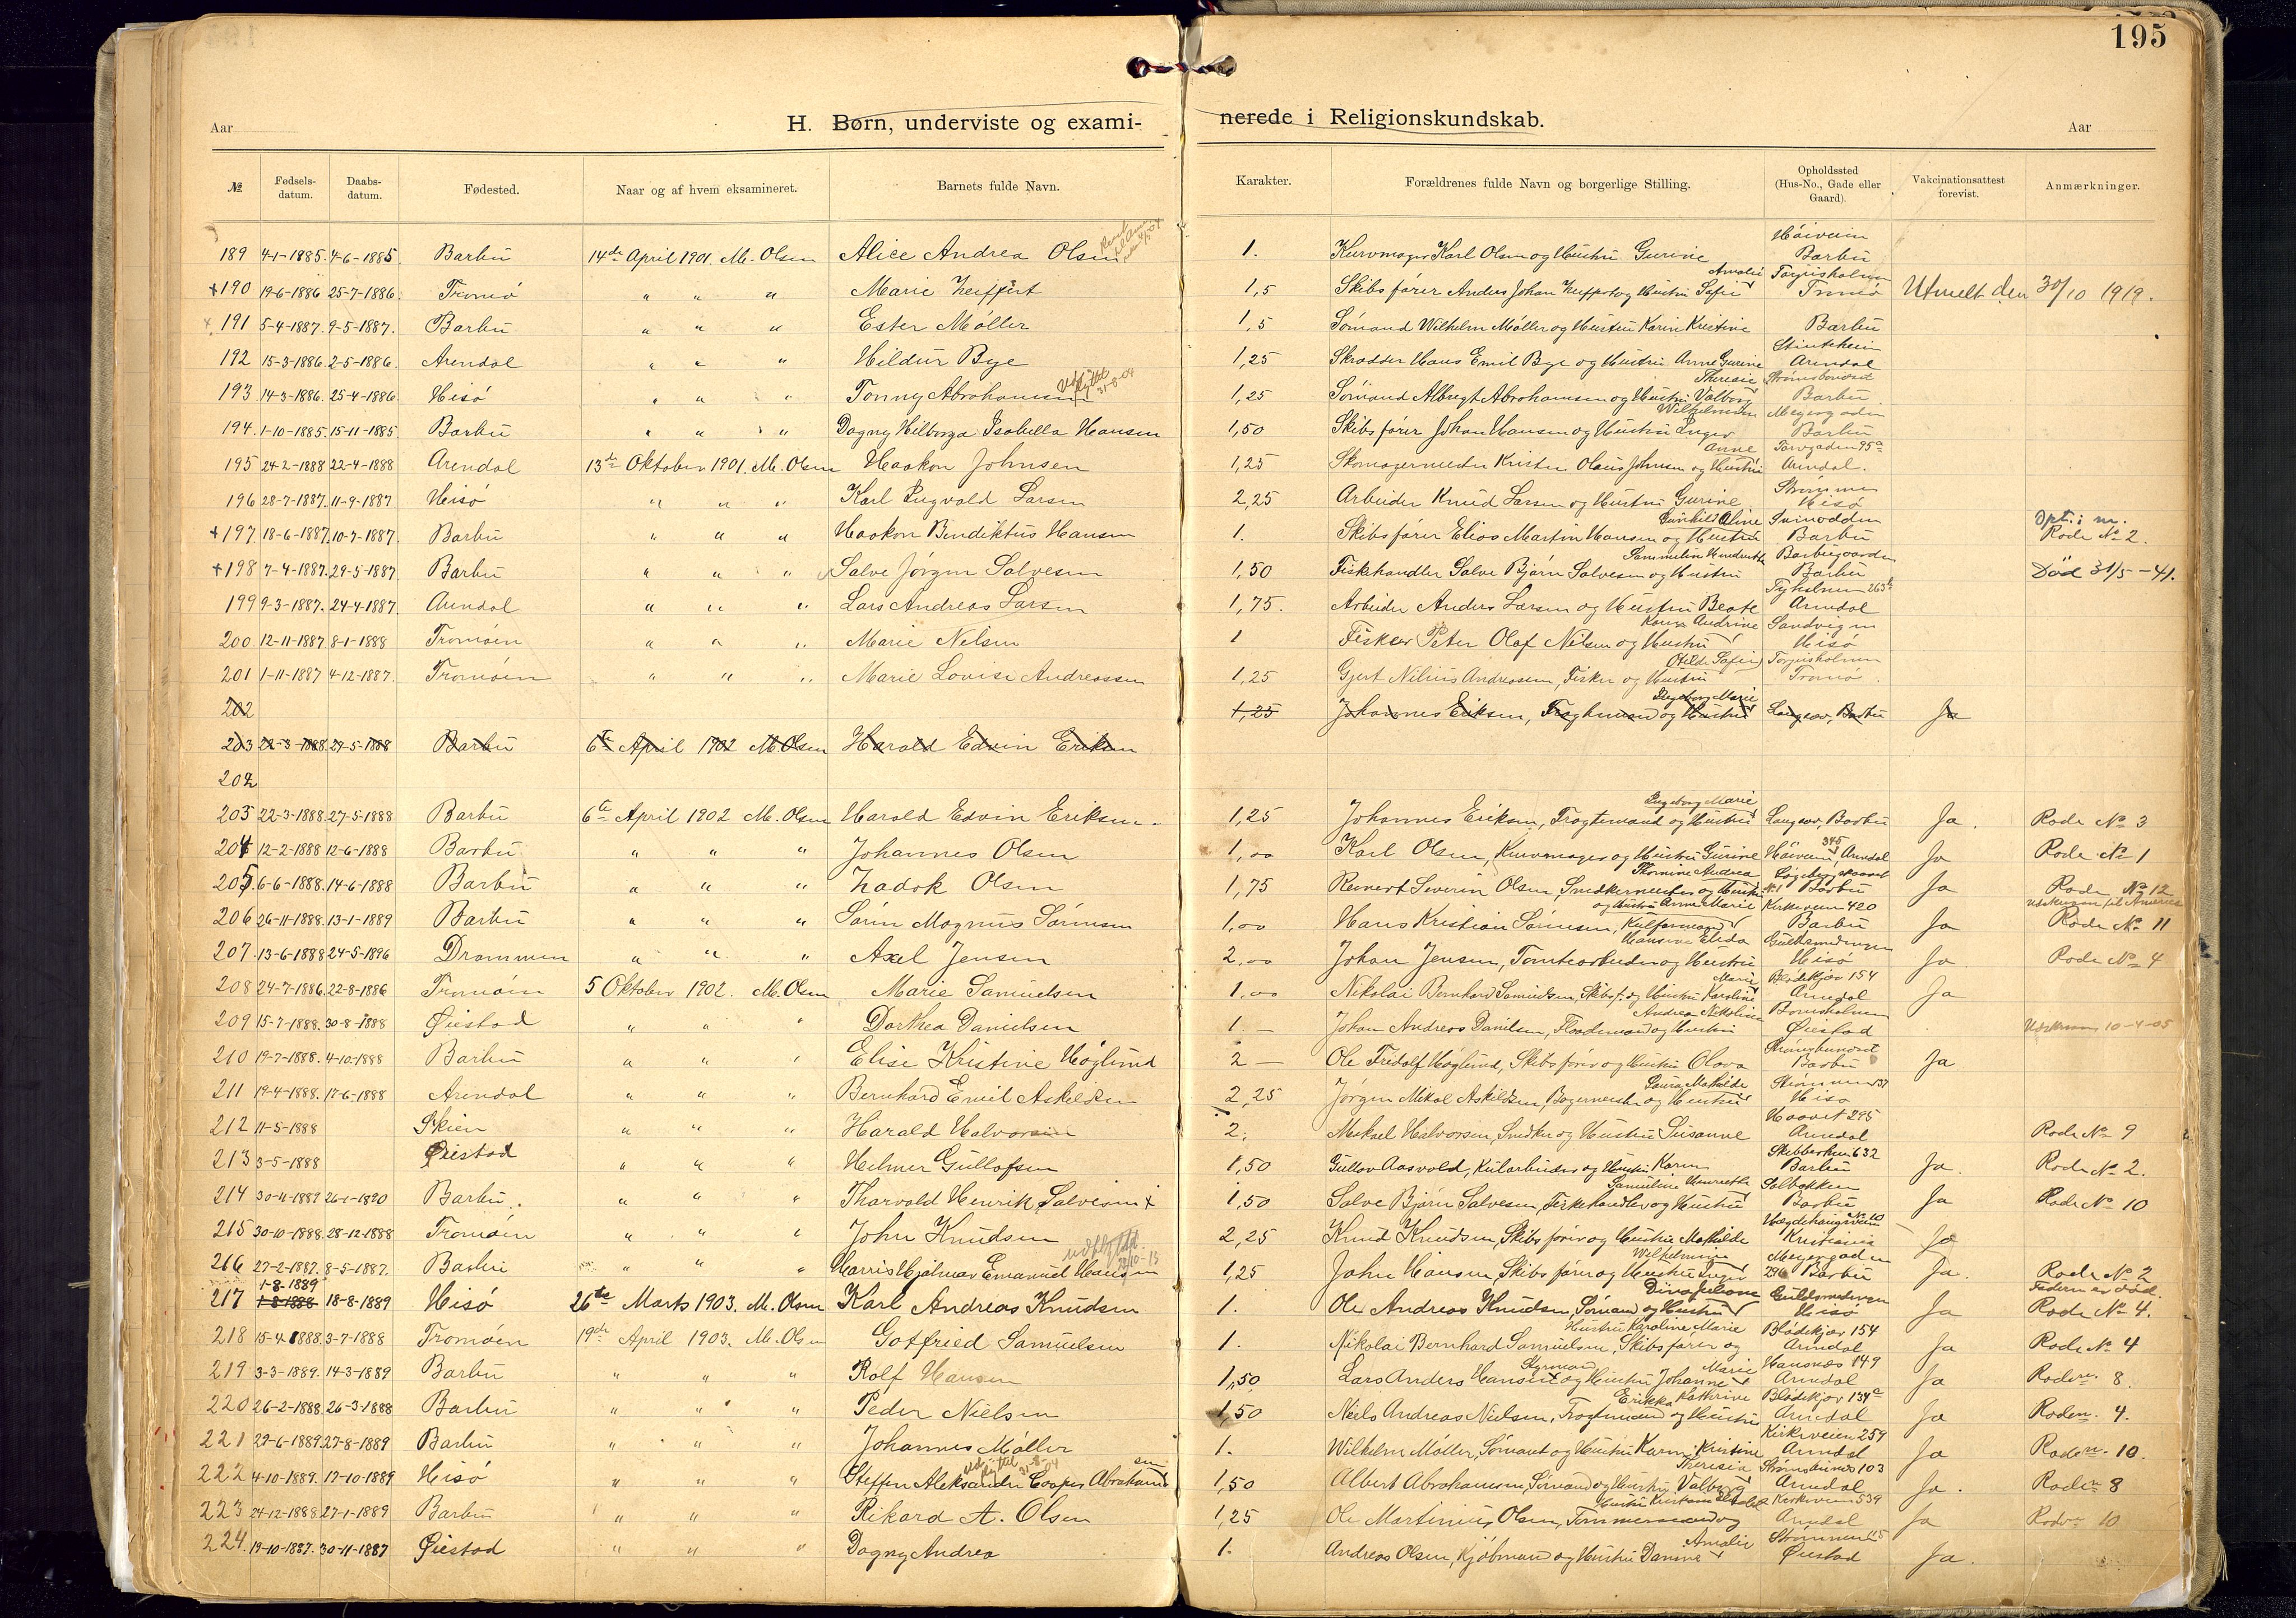 195
Aar
H. Børn, underviste og exami- nerede i Religionskundskab.
Aar
№ Fødsels-datum. Daabs-datum. Fødested. Naar og af hvem eksamineret. Barnets fulde Navn. Karakter. Forældrenes fulde Navn og borgerlige Stilling. Opholdssted (Hus-No., Gade eller Gaard). Vakcinationsattest forevist. Anmærkninger.
189 4-1-1885. 4-6-1885. Barbu 14de April 1901. M. Olsen Alice Andrea Olsen 1. Kurvmager Karl Olsen og Hustru Gurine Høiveien Barbu
+190 19-6-1886 25-7-1886. Tromø " " " Marie 1,5 Skibsfører Anders Johan og Hustru Sofie Amalie Torjusholmen Tromø Utmelt den 30/10 1919.
191 5-4-1887. 9-5-1887. Barbu " " " Ester Møller 1,5 Sømand Wilhelm Møller og Hustru Karin Kristine Barbu
192 15-3-1886. 2-5-1886. Arendal " " " Hildur Bye 1,25 Skrædder Hans Emil Bye og Hustru Anne Gurine Arendal
193 14-3-1886. 25-4-1886. Hisø " " " Tonny Abrahamsen Udflyttet 31-8-04 1,25 Sømand Albregt Abrahamsen og Hustru Valborg Theresie Strømsbonæset Barbu
194. 1-10-1885. 15-11-1885. Barbu " " " Dagny Hilborga Isabella Hansen 1,50 Skibsfører Johan Hansen og Hustru Inger Wilhelmine Meyergaden Barbu
195 24-2-1888 22-4-1888 Arendal 13de Oktober 1901. M. Olsen Haakon Johnsen 1,25 Skomagermester Kristen Olaus Johnsen og Hustru Anne Torvgaden 95a Arendal.
196 28-7-1887. 11-9-1887. Hisø " " " Karl Ingvald Larsen 2,25 Arbeider Knud Larsen og Hustru Gurine Strømmen Hisø
+197. 18-6-1887. 10-7-1887. Barbu " " " Haakon Bendiktus Hansen 1. Skibsfører Elias Martin Hansen og Hustru Gunhild Aline Barbu Opt. i m. Rode № 2.
+198 7-4-1887. 29-5-1887 Barbu " " " Salve Jørgen Salvesen 1,50 Fiskehandler Salve Bjørn Salvesen og Hustru Barbugaarden Barbu Død 31/5-41.
199 9-3-1887. 24-4-1887. Arendal " " " Lars Andreas Larsen 1,75. Arbeider Anders Larsen og Hustru Beate 263b Arendal
200 12-11-1887 8-1-1888 Tromøen " " " Marie Nilsen 1 Fisker Peter Olaf Nilsen og Hustru Andrine Sandvigen Hisø
201 1-11-1887 4-12-1887. Tromøen " " " Marie Lovise Andreassen 1,25 Gjert Nilius Andreassen, Fisker og Hustru Otilde Sofie Torjusholmen Tromø.
202 1,25 Johannes Eriksen, Fragtmand og Hustru Ingeborg Marie Langsæv, Barbu Ja
203 22-3-1888. 27-5-1888 Barbu 6te April 1902 M. Olsen Harald Edvin Eriksen
202
203 22-3-1888. 27-5-1888 Barbu 6te April 1902 M. Olsen Harald Edvin Eriksen. 1,25 Johannes Eriksen, Fragtemand og Hustru Ingeborg Marie Langsæv, Barbu Ja. Rode № 3
204 12-2-1888 12-6-1888 Barbu " " " Johannes Olsen 1,00 Karl Olsen, Kurvmager og Hustru Gurine Høiveien 345, Arendal Ja Rode № 1
205. 6-6-1888. 14-6-1888 Barbu " " " Zadok Olsen 1,75 Reinert Severin Olsen, Snedkermester og Hustru Thomine Andrea Barbu Ja Rode № 12
206 26-11-1888. 13-1-1889 Barbu " " " Sørin Magnus Sørensen 1,00 Hans Kristian Sørensen, Kulformand og Hustru Anne Marie Kirkeveien 420 Barbu Ja Rode № 11
207. 13-6-1888 24-5-1896 Drammen " " " Axel Jensen 2,00 Johan Jensen, Tomtearbeider og Hustru Hansine Elida Guldsmedengen Hisø Ja Rode № 4
208 24-7-1886. 22-8-1886 Tromøen 5 Oktober 1902. M. Olsen Marie Samuelsen 1,00 Nikolai Bernhard Samuelsen, Skibsf. og Hustru Karoline Marie Blødekjær 154 Arendal Ja
209 15-7-1888. 30-8-1888 Øiestad " " " Dorthea Danielsen 1. - Johan Andreas Danilsen, Flaademand og Hustru Andrea Nikoline Øiestad 10-4-05
210 19-7-1888. 4-10-1888 Barbu " " " Elise Kristine Høglund 2 - Ole Fridolf Høglund, Skibsfører og Hustru Olava Strømsbunæset Barbu Ja
211 19-4-1888. 17-6-1888 Arendal " " " Bernhard Emil Askildsen 2,25 Jørgen Mikal Askildsen, Bagermester og Hustru Laura Mathilde Strømmen 37 Hisø
212 11-5-1888 Skien " " " Harald Halvorsen 2. Mikael Halvorsen, Snedker og Hustru Susanne Haavet 295 Arendal Rode № 9
213 3-5-1888 Øiestad " " " Helmer Gullofsen 1,50 Gullov Aasvold, Kularbeider og Hustru Karen 632 Barbu Ja. Rode № 2.
214 30-11-1889 26-1-1890 Barbu. " " " Tharvald Henrik Salvesen + 1,50 Salve Bjørn Salvesen, Fiskehandler og Hustru Samueline Henriette Solbakken Barbu Ja Rode № 10
215 30-10-1888. 28-12-1888 Tromøen " " " John Knudsen 2,25 Knud Knudsen, Skibsfører og Hustru Mathilde № 10 Kristiania Ja
216 27-2-1887. 8-5-1887. Barbu " " " Harris Hjalmar Emanuel Hansen udflyttet 23/10-13 1,25 John Hansen, Skibsfører og Hustru Inger Wilhelmine Meyergaden 296 Barbu Ja. Rode № 2
217 1-8-1888 1-8-1889 18-8-1889 Hisø 26de Marts 1903. M. Olsen Karl Andreas Knudsen 1. Ole Andreas Knudsen, Sømand og Hustru Dina Juliane Guldsmedengen Hisø Ja Faderen er død. Rode № 4.
218 15-4-1888 3-7-1888 Tromøen 19de April 1903. M. Olsen Gotfried Samuelsen 1. Nikolai Bernhard Samuelsen, Skibsfører og Hustru Karoline Marie Blødekjær 154 Arendal Ja Rode № 4
219 3-3-1889. 14-3-1889 Barbu " " " Rolf Hansen 1,50 Lars Anders Hansen Styrmand og Hustru Johanne Marie Hansnæs 149 Arendal Ja Rode n. 8.
220 26-2-1888. 26-3-1888 Barbu " " " Peder Nielsen 1,50 Niels Andreas Nielsen, og Hustru Erikka Kathrine Blødekjær 134c Arendal Ja Rode n. 4.
221 29-6-1889. 27-8-1889 Barbu " " " Johannes Møller 1. Wilhelm Møller, Sømant og Hustru Karen Kristine Kirkeveien 259 Arendal Ja Rode n. 10.
222 4-10-1889. 13-10-1889 Hisø " " " Steffen Aleksander Cooper Abrahamsen Udflyttet 31-8-04 1,50 Albert Abrahamsen, Sømand og Hustru Valborg Theresia 103 Arendal Ja. Rode n 8
223 24-12-1888 27-1-1889 Barbu " " " Rikard A. Olsen 1,25 Ole Martinius Olsen, Tømmermand og Hustru Kirkeveien 539 Arendal Ja Rode n 10
224. 19-10-1887. 30-11-1887 Øiestad " " " Dagny Andrea 1. Andreas Olsen, Kjøbmand og Hustru Amalie Strømmen 115 Øiestad Ja.